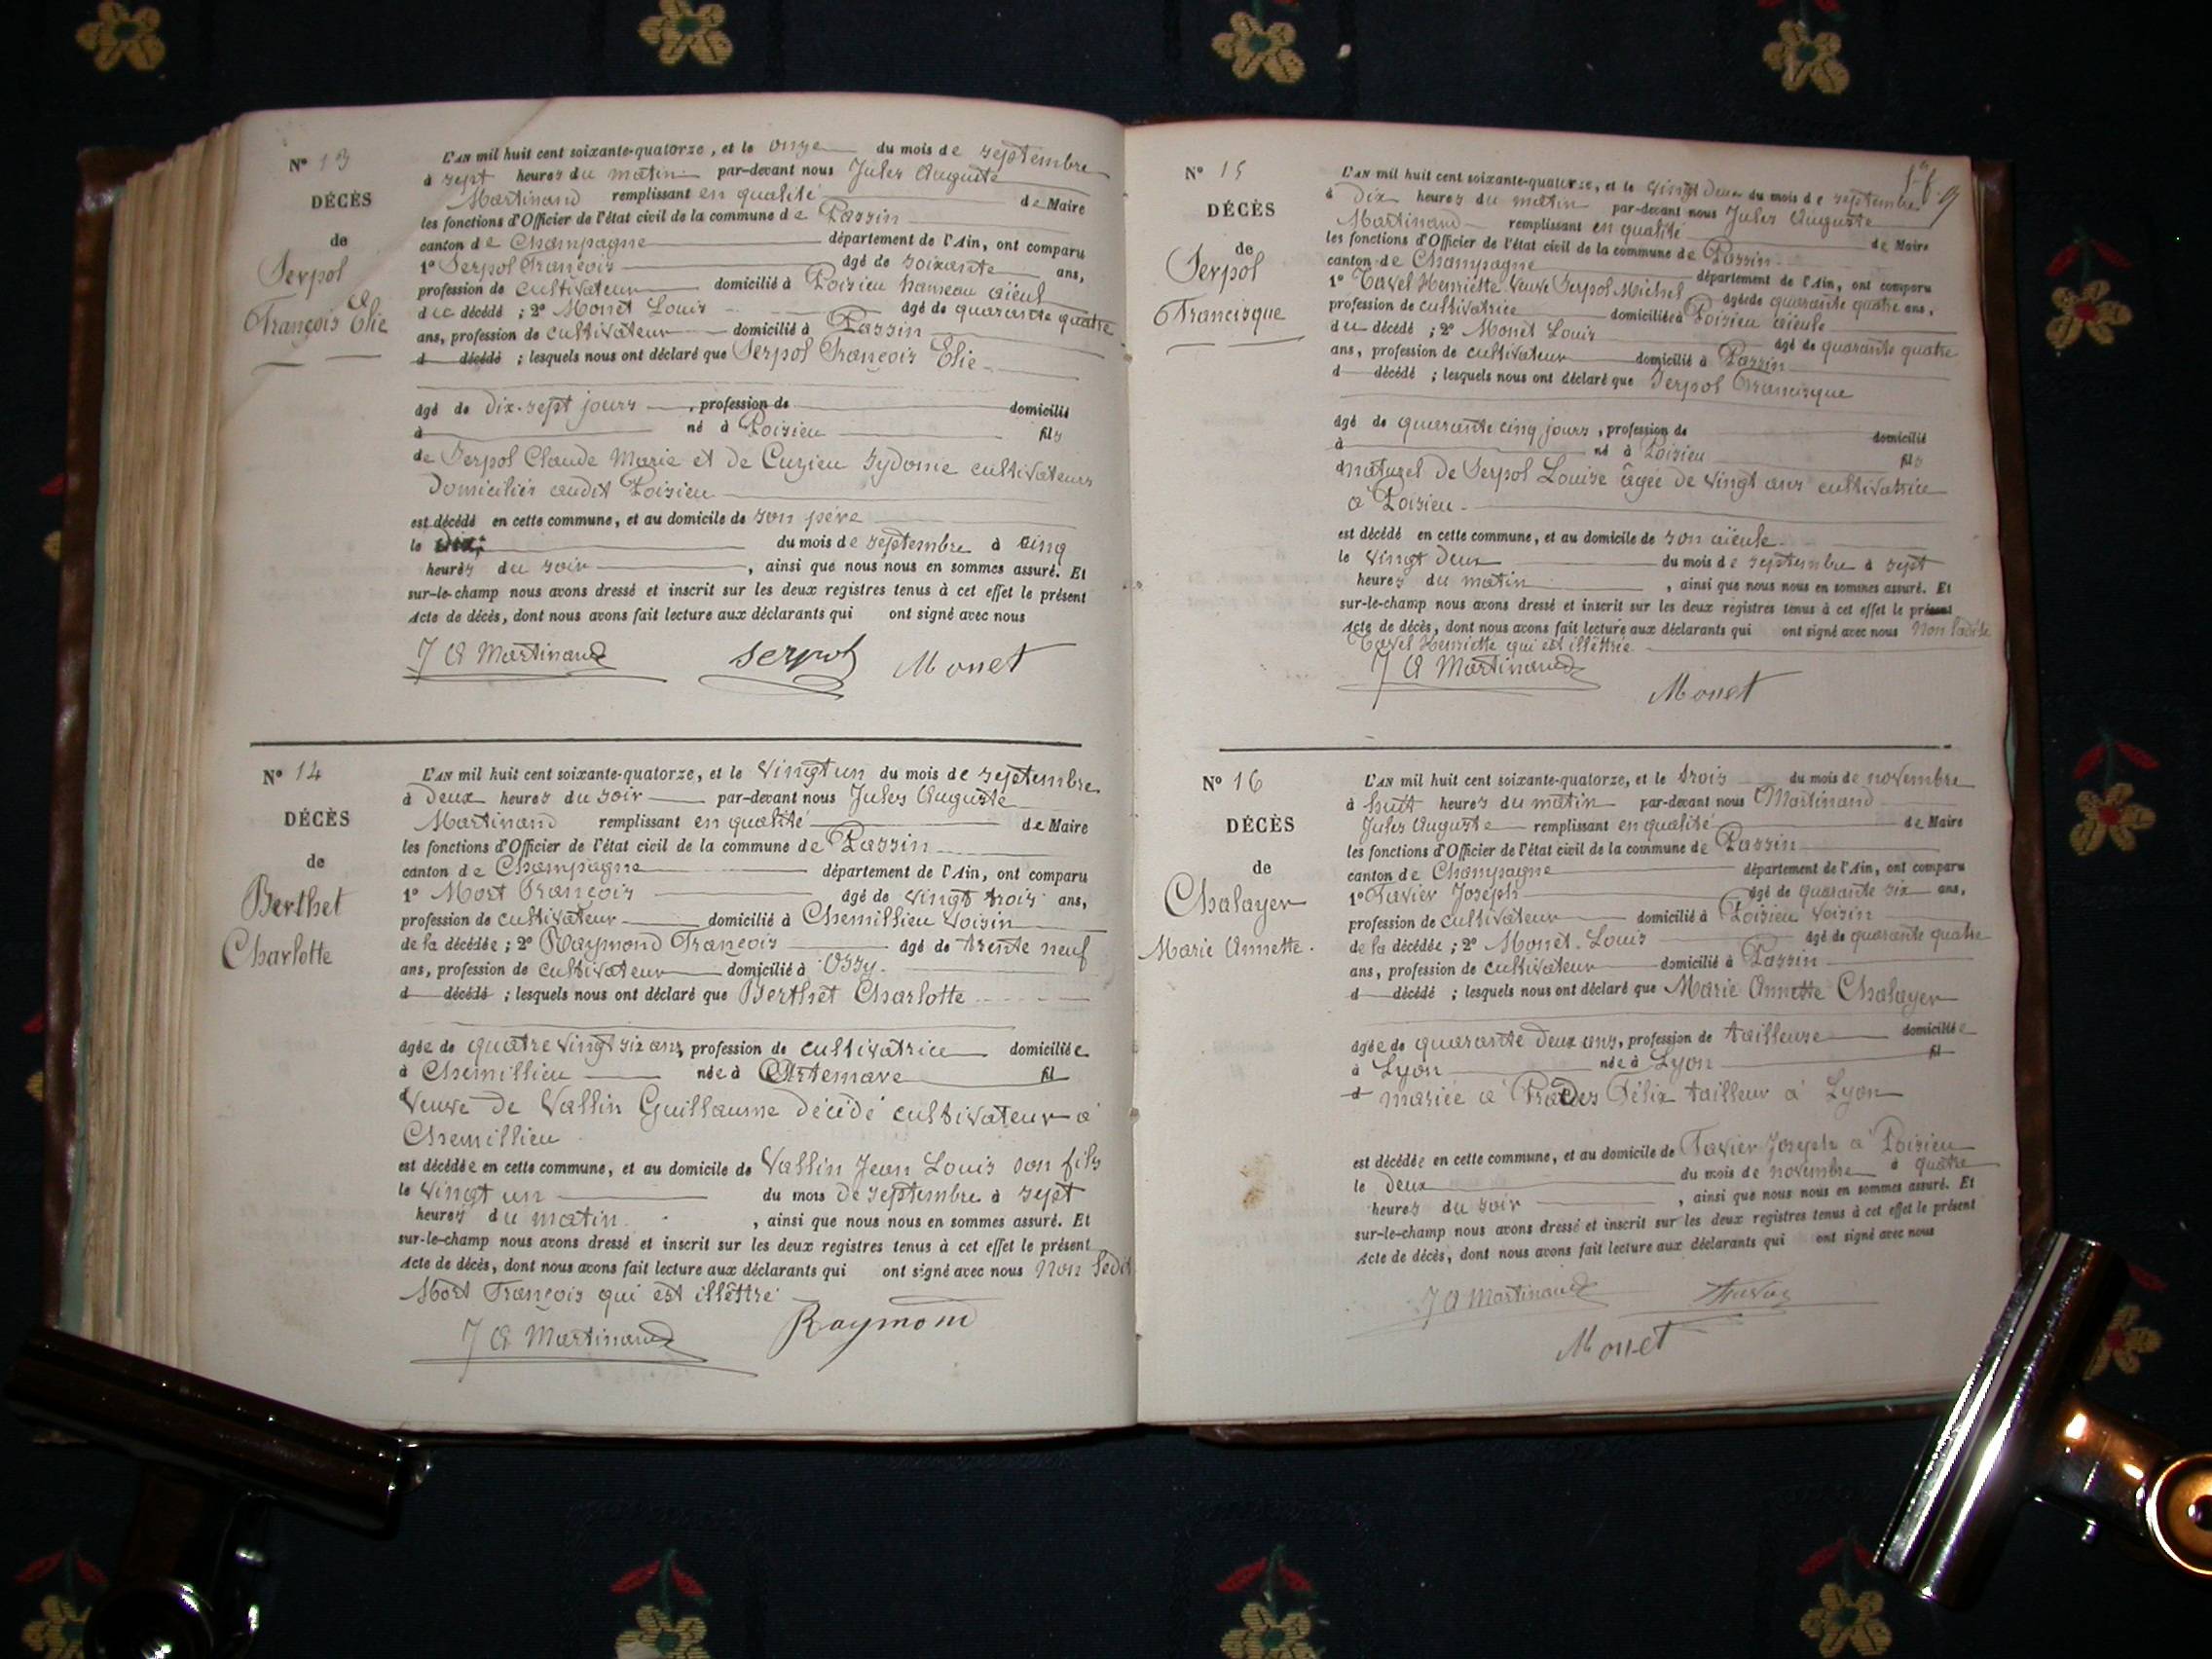 N° 13
DÉCÈS
de
Serpol
François Elie
L'AN mil huit cent soixante-quatorze, et le onze du mois de septembre
à sept heures du matin par-devant nous Jules Auguste
Martinand remplissant en qualité de Maire
les fonctions d'Officier de l'état civil de la commune de Passin
canton de Champagne département de l'Ain, ont comparu
1° Serpol François âgé de soixante ans,
profession de cultivateur domicilié à Poisieu hameau aïeul
du décédé ; 2° Monet Louis âgé de quarante quatre
ans, profession de cultivateur domicilié à Passin
d décédé ; lesquels nous ont déclaré que Serpol François Elie
âgé de dix-sept jours, profession de domicilié
à né à Poisieu fils
de Serpol Claude Marie et de Cuzieu Sydonie cultivateurs
domiciliés audit Poisieu
est décédé en cette commune, et au domicile de son père
le dix du mois de septembre à cinq
heures du soir, ainsi que nous nous en sommes assuré. Et
sur-le-champ nous avons dressé et inscrit sur les deux registres tenus à cet effet le présent
Acte de décès, dont nous avons fait lecture aux déclarants qui ont signé avec nous
J A Martinand Serpol Monet
N° 14
DÉCÈS
de
Berthet
Charlotte
L'AN mil huit cent soixante-quatorze, et le vingt un du mois de septembre
à deux heures du soir par-devant nous Jules Auguste
Martinand remplissant en qualité de Maire
les fonctions d'Officier de l'état civil de la commune de Passin
canton de Champagne département de l'Ain, ont comparu
1° Mort François âgé de vingt trois ans,
profession de cultivateur domicilié à Chemillieu voisin
de la décédée ; 2° Raymond François âgé de trente neuf
ans, profession de cultivateur domicilié à Ossy
d décédé ; lesquels nous ont déclaré que Berthet Charlotte
âgée de quatre vingt six ans, profession de cultivatrice domiciliée
à Chemillieu née à Artemare fil
veuve de Vallin Guillaume décédé cultivateur à
Chemillieu
est décédée en cette commune, et au domicile de Vallin Jean Louis son fils
le vingt un du mois de septembre à sept
heures du matin, ainsi que nous nous en sommes assuré. Et
sur-le-champ nous avons dressé et inscrit sur les deux registres tenus à cet effet le présent
Acte de décès, dont nous avons fait lecture aux déclarants qui ont signé avec nous Non ledit
Mort François qui est illettré
J A Martinand Raymond
N° 15
DÉCÈS
de
Serpol
Francisque
L'AN mil huit cent soixante-quatorze, et le vingt deux du mois de septembre
à dix heures du matin par-devant nous Jules Auguste
Martinand remplissant en qualité de Maire
les fonctions d'Officier de l'état civil de la commune de Passin
canton de Champagne département de l'Ain, ont comparu
1° Tavel Henriette veuve Serpol Michel âgé de quarante quatre ans,
profession de cultivatrice domiciliée à Poisieu aïeule
du décédé ; 2° Monet Louis âgé de quarante quatre
ans, profession de cultivateur domicilié à Passin
d décédé ; lesquels nous ont déclaré que Serpol Francisque
âgé de quarante cinq jours, profession de domicilié
à né à Poisieu fils
naturel de Serpol Louise âgée de vingt ans cultivatrice
à Poisieu
est décédé en cette commune, et au domicile de son aïeule
le vingt deux du mois de septembre à sept
heures du matin, ainsi que nous nous en sommes assuré. Et
sur-le-champ nous avons dressé et inscrit sur les deux registres tenus à cet effet le présent
Acte de décès, dont nous avons fait lecture aux déclarants qui ont signé avec nous Non ladite
Tavel Henriette qui est illettrée
J A Martinand
Monet
N° 16
DÉCÈS
de
Chalayer
Marie Annette.
L'AN mil huit cent soixante-quatorze, et le trois du mois de novembre
à huit heures du matin par-devant nous Martinand
Jules Auguste remplissant en qualité de Maire
les fonctions d'Officier de l'état civil de la commune de Passin
canton de Champagne département de l'Ain, ont comparu
1° Tavier Joseph âgé de quarante six ans,
profession de cultivateur domicilié à Poisieu voisin
de la décédée ; 2° Monet Louis âgé de quarante quatre
ans, profession de cultivateur domicilié à Passin
d décédé ; lesquels nous ont déclaré que Marie Annette Chalayer
âgée de quarante deux ans, profession de tailleuse domiciliée
à Lyon née à Lyon fil
d mariée à Félix tailleur à Lyon
est décédée en cette commune, et au domicile de Tavier Joseph à Poisieu
le deux du mois de novembre à quatre
heures du soir, ainsi que nous nous en sommes assuré. Et
sur-le-champ nous avons dressé et inscrit sur les deux registres tenus à cet effet le présent
Acte de décès, dont nous avons fait lecture aux déclarants qui ont signé avec nous
J A Martinand
Monet